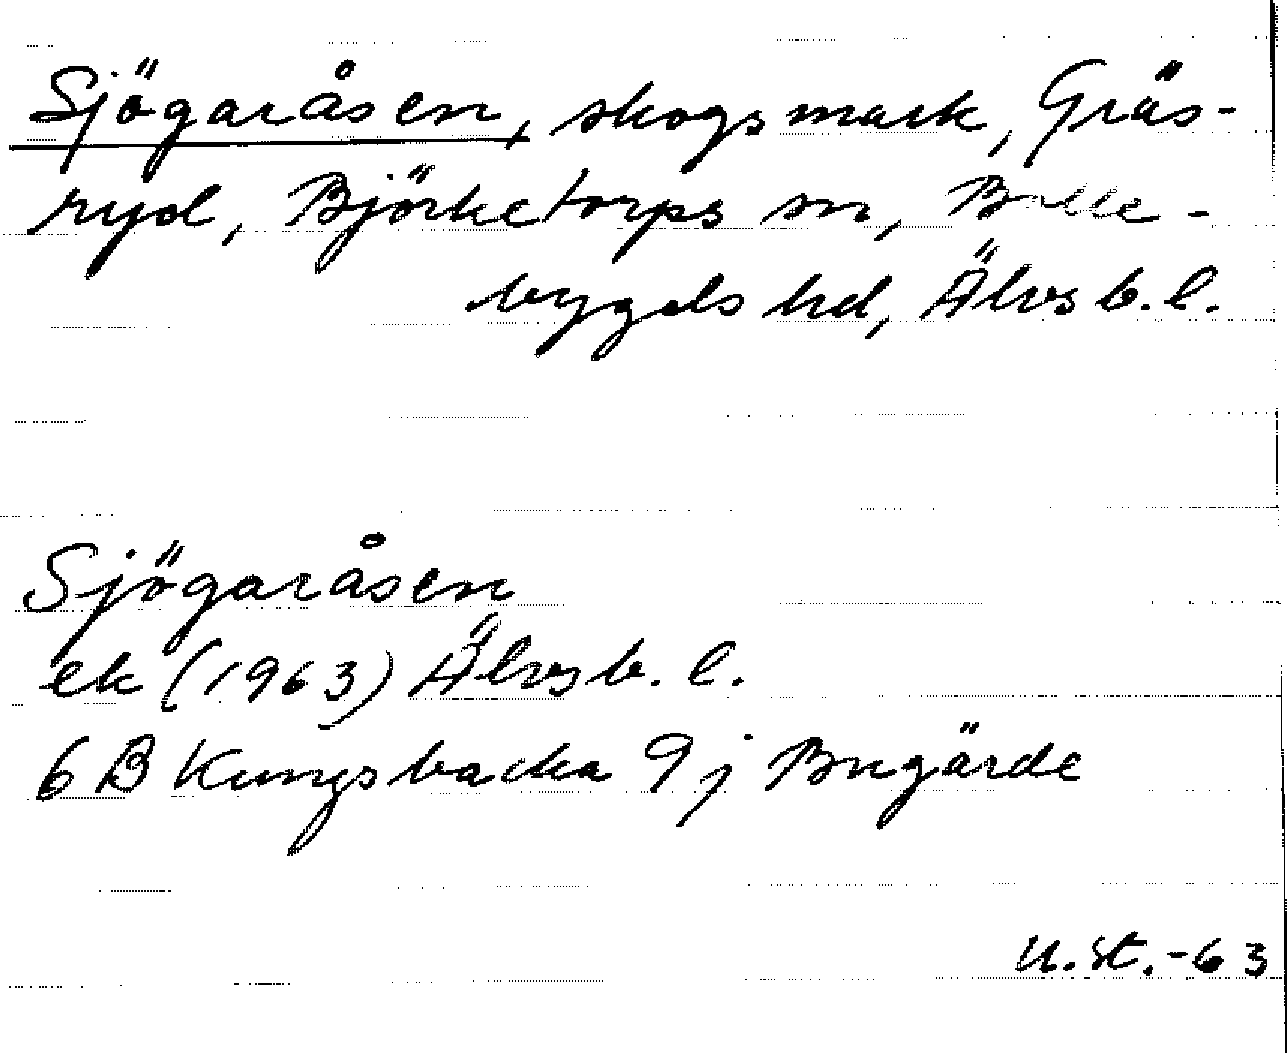 Sjögaråsen, skogsmark, Gräs-
ryd, Björketorps sn, Bolle-
bygds hd, Älvsb. l.
Sjögaråsen
ek (1963) Älvsb. l.
6 B Kungsbacka 9 j Bugärde
U. St. -63